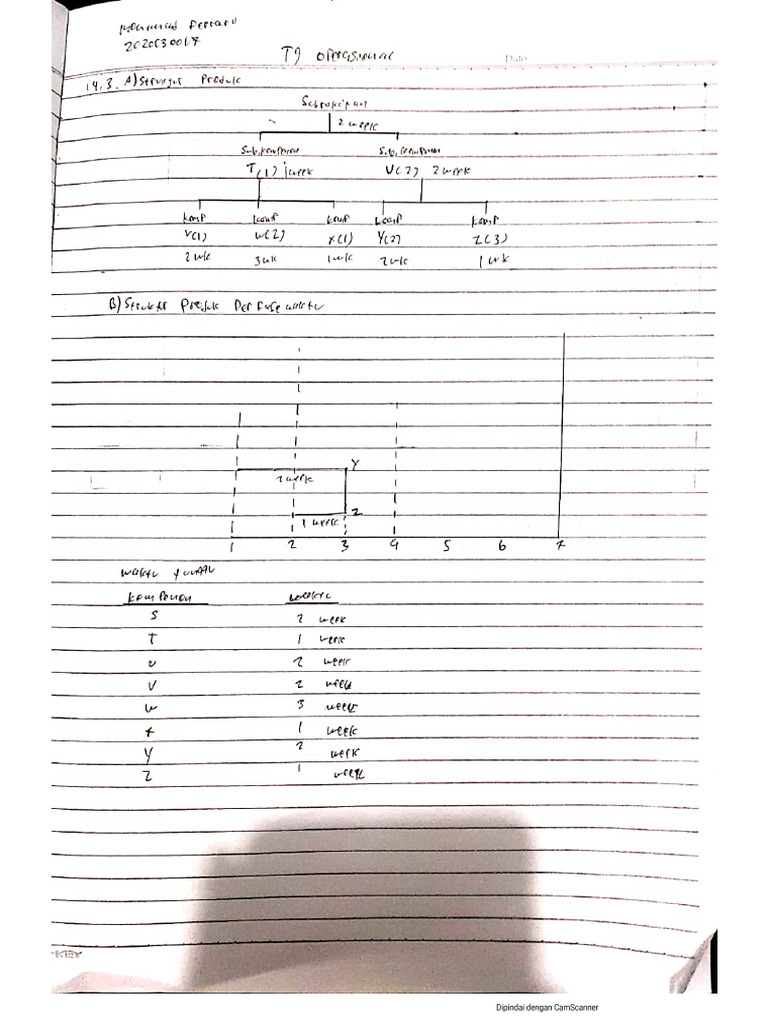 2020530017
T9 operasional
Date
14.3. A) Struktur Produk
2 week
T(1) 1 week U(2) 2 week
komp komp komp komp komp
V(1) W(2) X(1) Y(2) Z(3)
2 wk 3 wk 1 wk 2 wk 1 wk
B) Struktur Produk Per fase waktu
Y
2 week
Z
1 week
1 2 3 4 5 6 7
waktu
komponen waktu
S 2 week
T 1 week
U 2 week
V 2 week
W 3 week
X 1 week
Y 2 week
Z 1 week
KEY
Dipindai dengan CamScanner